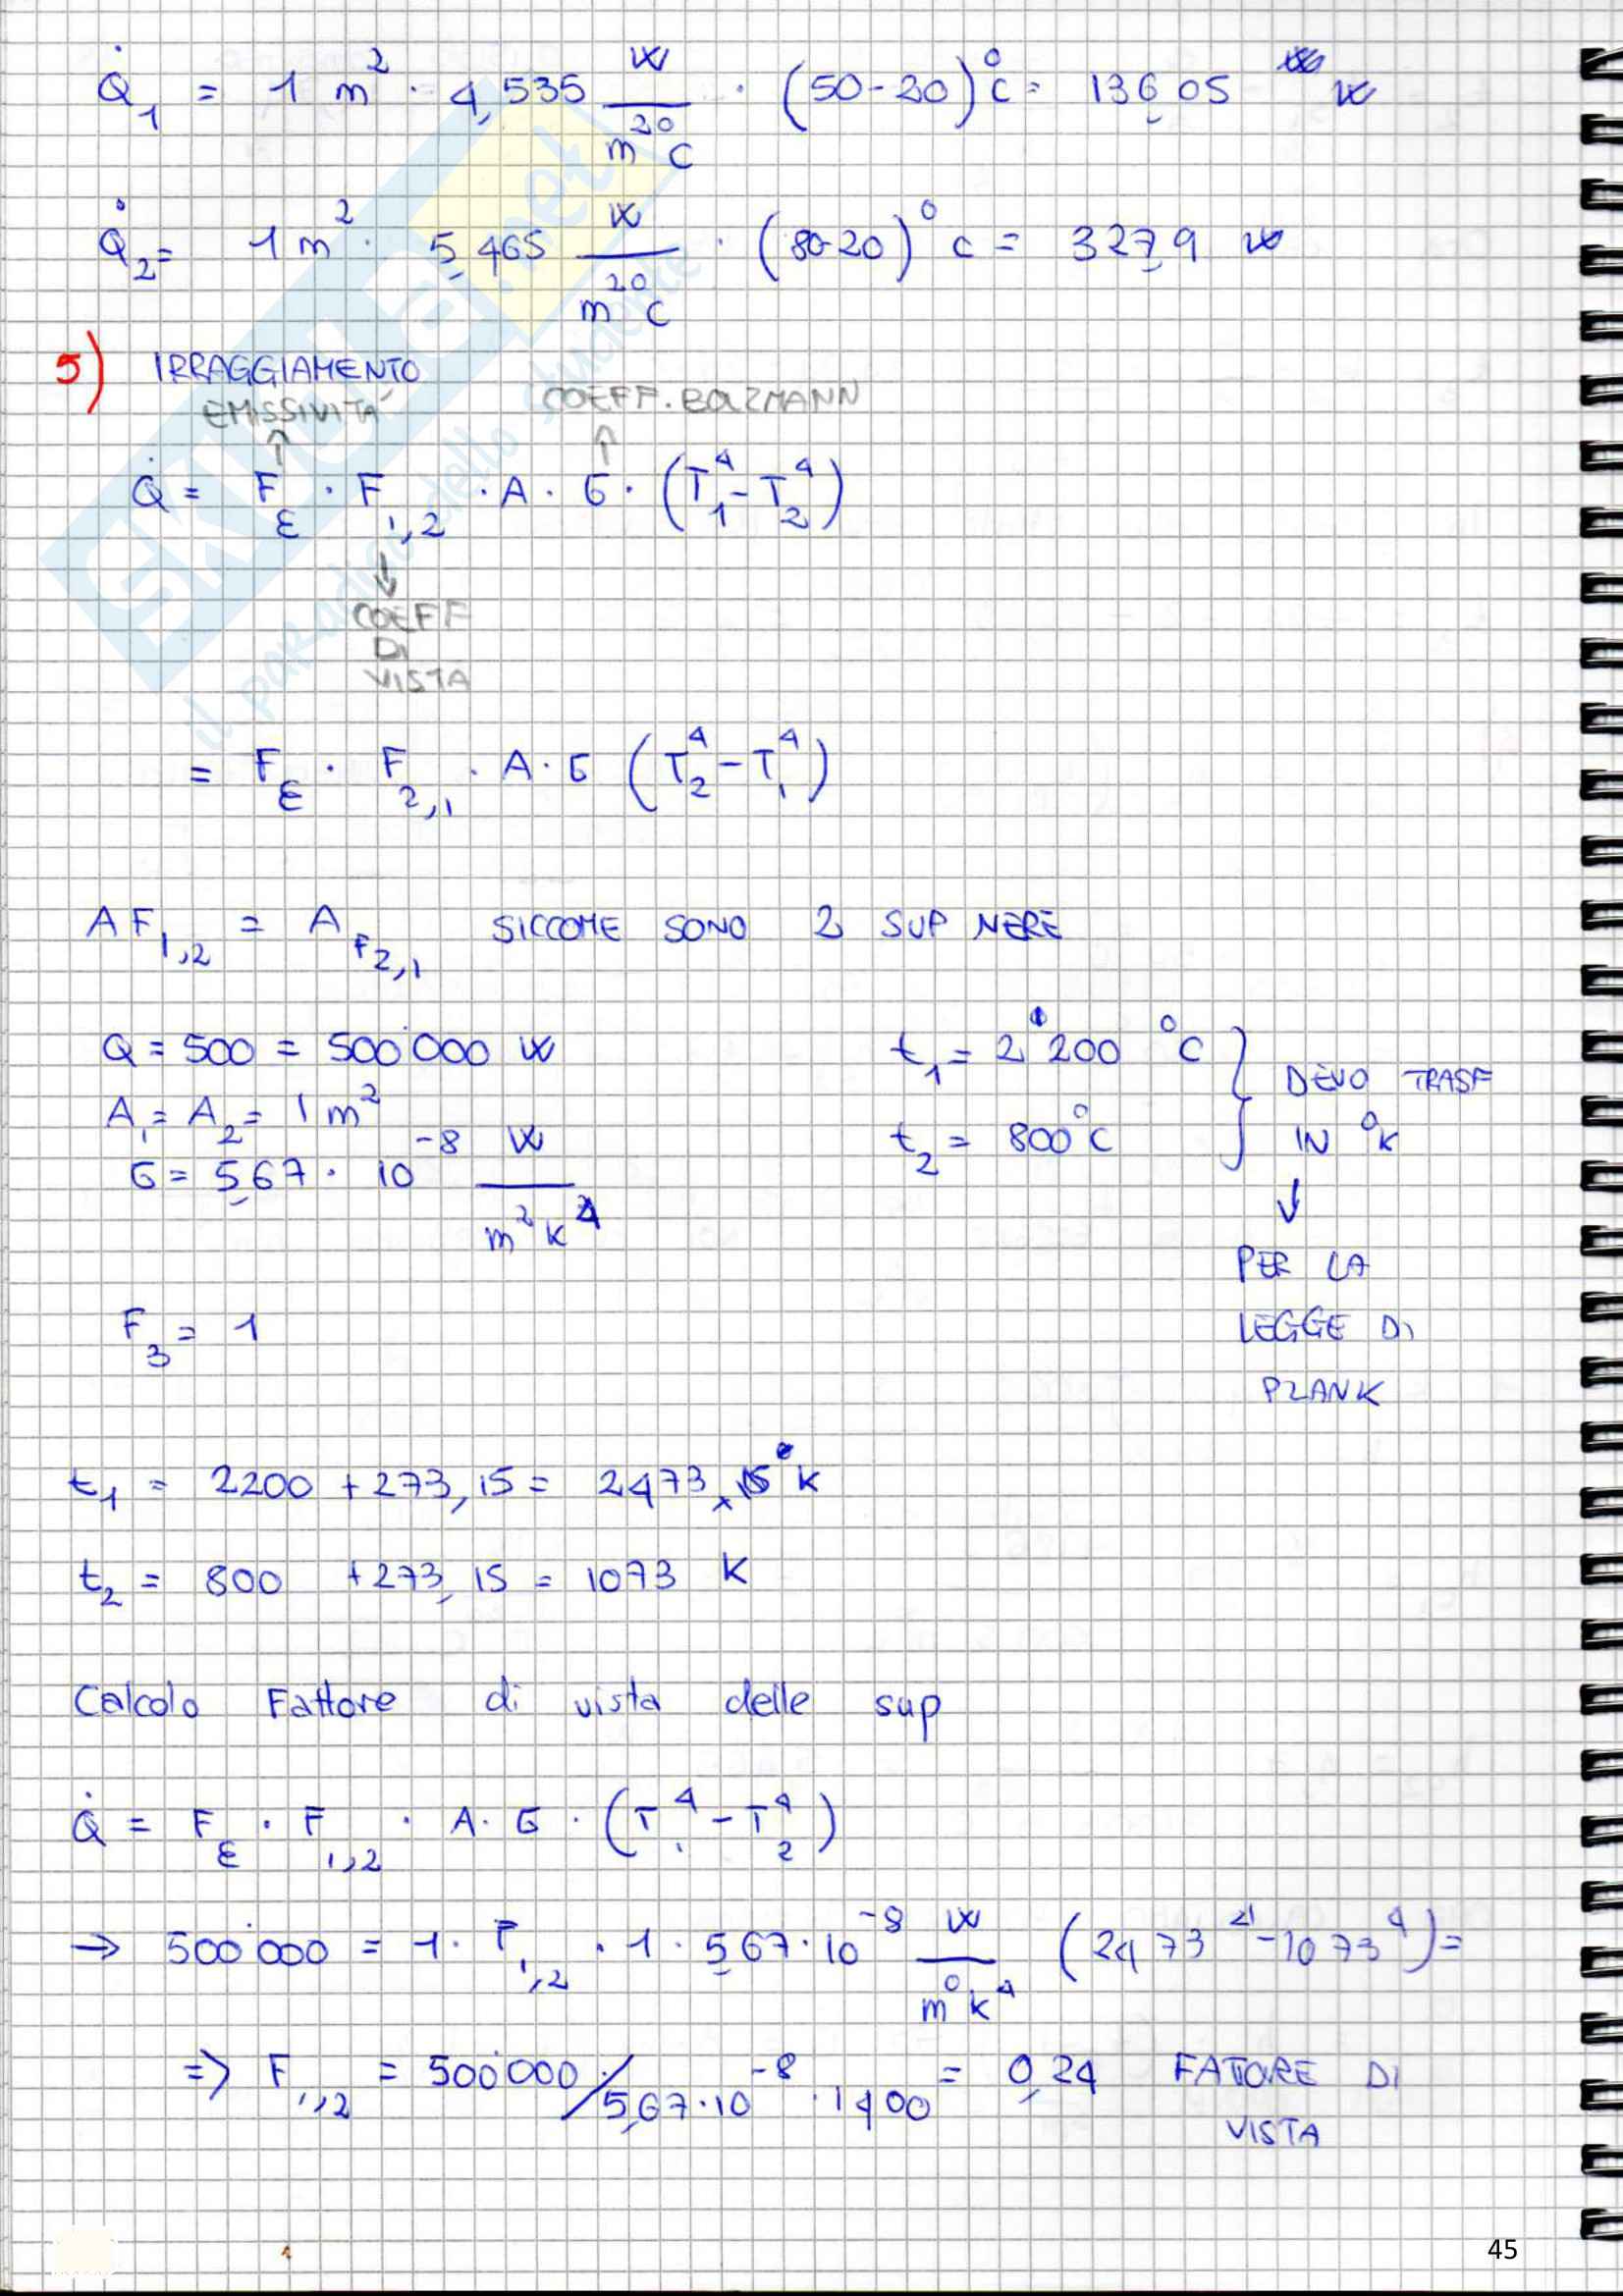 Q̇₁ = 1 m² · 4,535 W/m²°C · (50-20)°C = 136,05 W
Q̇₂ = 1 m² · 5,465 W/m²°C · (80-20)°C = 327,9 W
5) IRRAGGIAMENTO
EMISSIVITÀ COEFF. BOLZMANN
Q̇ = F_ε · F₁,₂ · A · σ · (T₁⁴ - T₂⁴)
COEFF
DI
VISTA
= F_ε · F₂,₁ · A · σ (T₂⁴ - T₁⁴)
A F₁,₂ = A F₂,₁ SICCOME SONO 2 SUP NERE
Q = 500 = 500'000 W
A₁ = A₂ = 1 m²
σ = 5,67 · 10⁻⁸ W/m²K⁴
t₁ = 2'200 °C
t₂ = 800°C
DEVO TRASF
IN °K
↓
PER LA
LEGGE DI
PLANK
F₃ = 1
t₁ = 2200 + 273,15 = 2473,15 °K
t₂ = 800 + 273,15 = 1073 K
Calcolo Fattore di vista delle sup
Q̇ = F_ε · F₁,₂ · A · σ · (T₁⁴ - T₂⁴)
→ 500'000 = 1 · F₁,₂ · 1 · 5,67 · 10⁻⁸ W/m⁰K⁴ (2473⁴ - 1073⁴) =
=> F₁,₂ = 500'000 / 5,67 · 10⁻⁸ · 1400 = 0,24 FATTORE DI
VISTA
45
SKUOLA.net
il paradiso dello studente